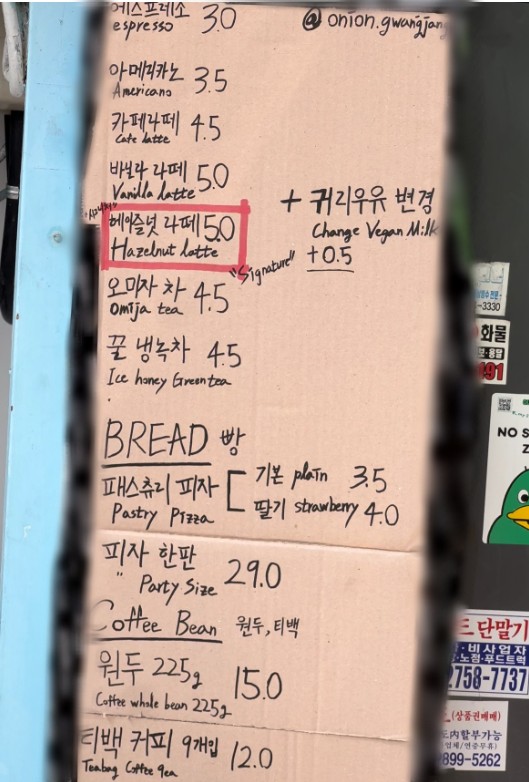 에스프레소 3.0
espresso
@onion.gwangjang
아메리카노 3.5
Americano
카페라떼 4.5
Cafe latte
바닐라 라떼 5.0
Vanilla latte
헤이즐넛 라떼 5.0
Hazelnut latte
"Signature"
+ 귀리우유 변경
Change Vegan Milk
+0.5
오미자 차 4.5
Omija tea
꿀 냉녹차 4.5
Ice honey Green tea
BREAD 빵
패스츄리 피자
Pastry Pizza
기본 plain 3.5
딸기 strawberry 4.0
피자 한판 29.0
" Party Size
Coffee Bean 원두, 티백
원두 225g 15.0
Coffee whole bean 225g
티백 커피 9개입 12.0
Teabag Coffee 9ea
-3330
화물
·용달
491
NO S
Z
드 단말기
·비사업자
·노점·푸드트럭
2758-7737
(상품권배매)
도내할부가능
업체/연중무휴)
899-5262